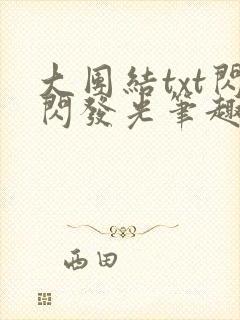 大团結txt閃
閃發光筆趣
西田